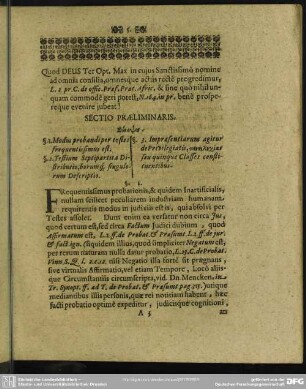 5.
Quod DEUS Ter Opt. Max in cujus Sanctissimo nomine
ad omnia consilia, omnesque actus recte progredimur,
L. 1. pr. C. de offic. Præf. Præt. Afric. & sine quo nihil un-
quam commode geri potest, N. 164. in pr. bene prospe-
reque evenire jubeat!
SECTIO PRÆLIMINARIS.
§. 1. Modus probandi per testes
frequentissimus est.
2. Testium Septipartita Di-
stributio, horumq; singulo-
rum Descriptio.
3. Impræsentiarum agitur
de
seu quinque Classes consti-
tuentibus.
§. 1.
Frequentissimus probationis, & quidem Inartificialis,
nullam scilicet peculiarem industriam humanam
requirentis modus in judiciis est is, qui absolvi per
Testes assolet. Dum enim ea versatur non circa Jus,
quod certum est, sed circa Factum Judici dubium, quod
Affirmatum est, L. 2. ff. de Probat. & Præsumt. L. 2. ff. de jur.
& fact. ign. (siquidem illius, quod simpliciter Negatum est,
per rerum naturam nulla datur probatio, L. 23. C. de Probat.
nisi Negatio illa forte sit prægnans,
sive virtualis Affirmatio, vel etiam Tempore, Loco aliis-
que Circumstantiis circumscripta, vid. Dn. Menckem. in
Tr. Synopt. ff. ad T. de Probat. & Præsumt. pag. 315.) utique
mediantibus illis personis, quæ rei notitiam habent, hæc
facti probatio optime expeditur, judicisque cognitioni,
A 3